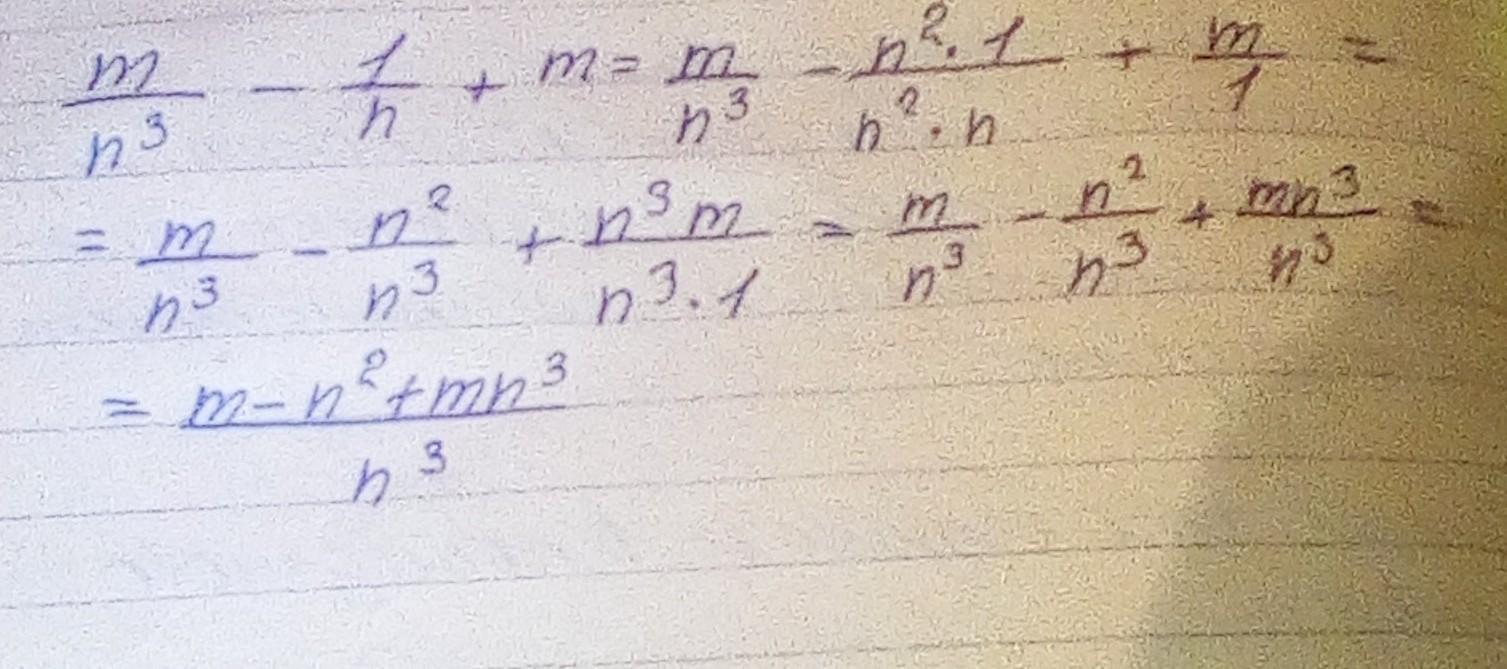 m/n³ − 1/n + m = m/n³ − n²·1/n²·n + m/1 =
= m/n³ − n²/n³ + n³m/n³·1 = m/n³ − n²/n³ + mn³/n³ =
= m−n²+mn³/n³